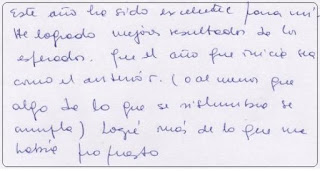 Este año ha sido excelente para mí.
He logrado mejores resultados de los
esperados. Que el año que inicia sea
como el anterior. (o al menos que
algo de lo que se vislumbra se
cumpla) Logré más de lo que me
había propuesto